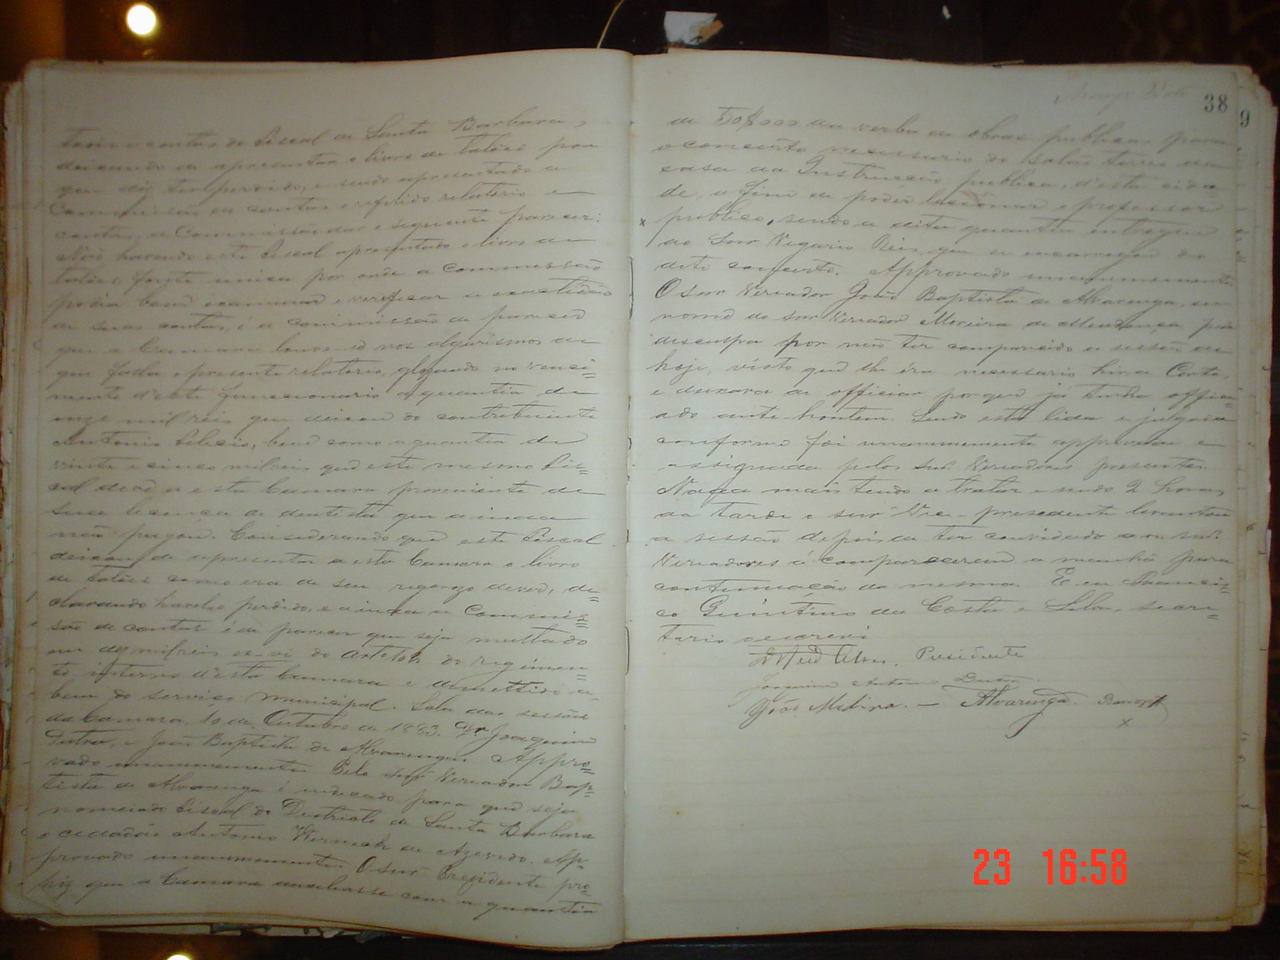 tario e contas do Fiscal de Santa Barbara,
deixando de apresentar o livro de talões por
que diz ter perdido, e sendo apresentado a
Commissão de contas o referido relatorio e
contas, a Commissão deu o seguinte parecer:
Não havendo este Fiscal apresentado o livro de
talões, fonte unica por onde a Commissão
podia bem examinar e verificar a exactidão
de suas contas, é a commissão de parecer
que a Camara louve-se nos algarismos de
que falla o presente relatorio, glosando no venci=
mento d'este funccionario a quantia de
onze mil reis que deixou do contribuinte
Antonio, bem como a quantia de
vinte e cinco mil reis que este mesmo Fis=
cal deve a esta Camara proveniente de
sua licença de dentista que ainda
não pagou. Considerando que este Fiscal
deixou de apresentar a esta Camara o livro
de talões como era de seu rigoroso dever, de=
clarando havel-o perdido, e ainda a Commis=
são de contas é de parecer que seja multado
em dez mil reis ex-vi do do regimen=
to interno d'esta Camara e demettido a
bem do serviço municipal. Sala das sessões
da Camara, 10 de Outubro de 1883. Dr Joaquim
Dutra, e João Baptista de Alvarenga. Appro=
vado unanimemente. Pelo snr Vereador Bap=
tista de Alvarenga é indicado para que seja
nomeiado Fiscal do Destricto de Santa Barbara
o cidadão Antonio Werneck de Azevedo. Ap=
provado unanimemente. O snr Presidente pro=
poz que a Camara auxiliasse com a quantia
38
9
de 50$000 da verba de obras publicas para
o concerto necessario do salão terreo da
casa da Instrucção publica, d'esta cida
de, a fim de poder leccionar o professor
x publico, sendo a dita quantia entregue
ao Snr Vigario Reis, que se encarregou do
dito concerto. Approvado unanimemente
O snr Vereador João Baptista de Alvarenga, em
nome do snr Vereador Moreira de Mendonça pede
desculpa por não ter comparecido a sessão de
hoje, visto que lhe era necessario hir a Corte,
e deixara de officiar porque já tinha offici=
ado ante-hontem. Sendo esta lida e julgada
conforme foi unanimemente approvada e
assignada pelos snrs Vereadores presentes.
Nada mais tendo a tratar e sendo 2 horas
da tarde o snr Vice-presidente levantou
a sessão depois de ter convidado aos snrs
Vereadores á comparecerem a manhã para
continuação da mesma. E eu Francis=
co Quintino da Costa e Silva, secre=
tario o escrevi
Presidente
Joaquim Antonio Dutra
João Alvarenga
x
23 16:58